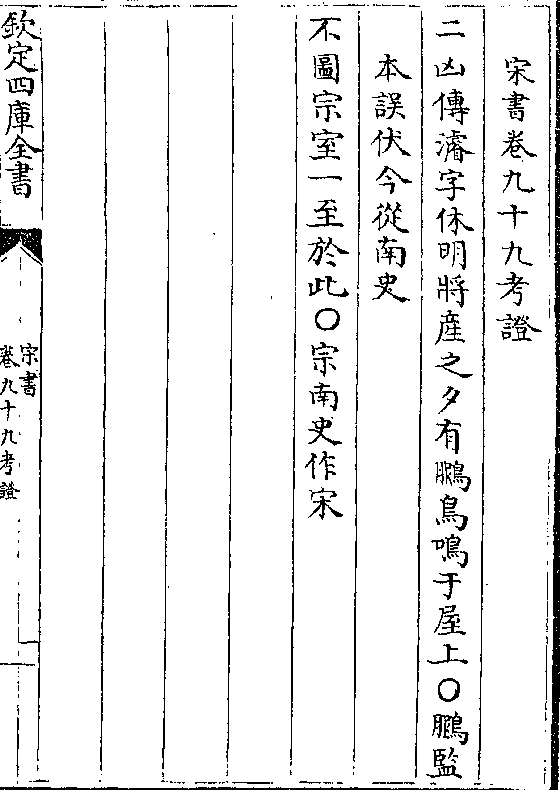 宋書卷九十九考證
二凶傳濬字休明將産之夕有鵩鳥鳴于屋上○鵩監
本誤伏今從南史
不圖宗室一至於此○宗南史作宋
欽定四庫全書
宋書
卷九十九考證